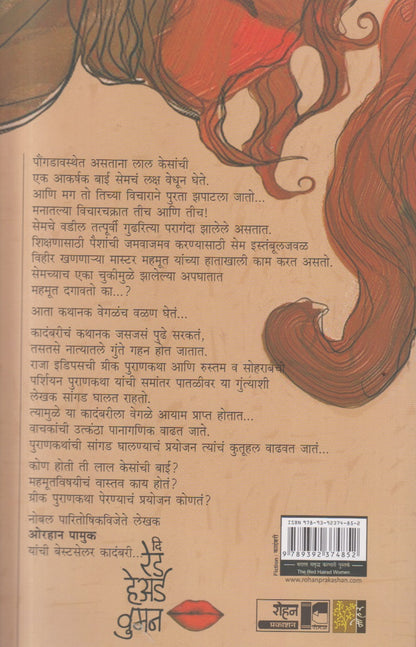 पौगडावस्थेत असताना लाल केसांची
एक आकर्षक बाई सेमचं लक्ष वेधून घेते.
आणि मग तो तिच्या विचाराने पुरता झपाटला जातो...
मनातल्या विचारचक्रात तीच आणि तीच!
सेमचे वडील तत्पूर्वी गूढरित्या परागंदा झालेले असतात.
शिक्षणासाठी पैशांची जमवाजमव करण्यासाठी सेम इस्तंबूलजवळ
विहीर खणणाऱ्या मास्टर महमूत यांच्या हाताखाली काम करत असतो.
सेमच्याच एका चुकीमुळे झालेल्या अपघातात
महमूत दगावतो का...?
आता कथानक वेगळंच वळण घेतं...
कादंबरीचं कथानक जसजसं पुढे सरकतं,
तसतसे नात्यातले गुंते गहन होत जातात.
राजा इडिपसची ग्रीक पुराणकथा आणि रुस्तम व सोहराबची
पर्शियन पुराणकथा यांची समांतर पातळीवर या गुंत्याशी
लेखक सांगड घालत राहतो.
त्यामुळे या कादंबरीला वेगळे आयाम प्राप्त होतात...
वाचकांची उत्कंठा पानागणिक वाढत जाते.
पुराणकथांची सांगड घालण्याचं प्रयोजन त्यांचं कुतूहल वाढवत जातं...
कोण होती ती लाल केसांची बाई?
महमूतविषयीचं वास्तव काय होतं?
ग्रीक पुराणकथा पेरण्याचं प्रयोजन कोणतं?
नोबल पारितोषिकविजेते लेखक
ओरहान पामुक
यांची बेस्टसेलर कादंबरी...
दि
रेड
हेअर्ड
वुमन
ISBN 978-93-92374-85-2
9 789392 374852
Fiction : कादंबरी
The Red Haired Women
www.rohanprakashan.com
रोहन
प्रकाशन